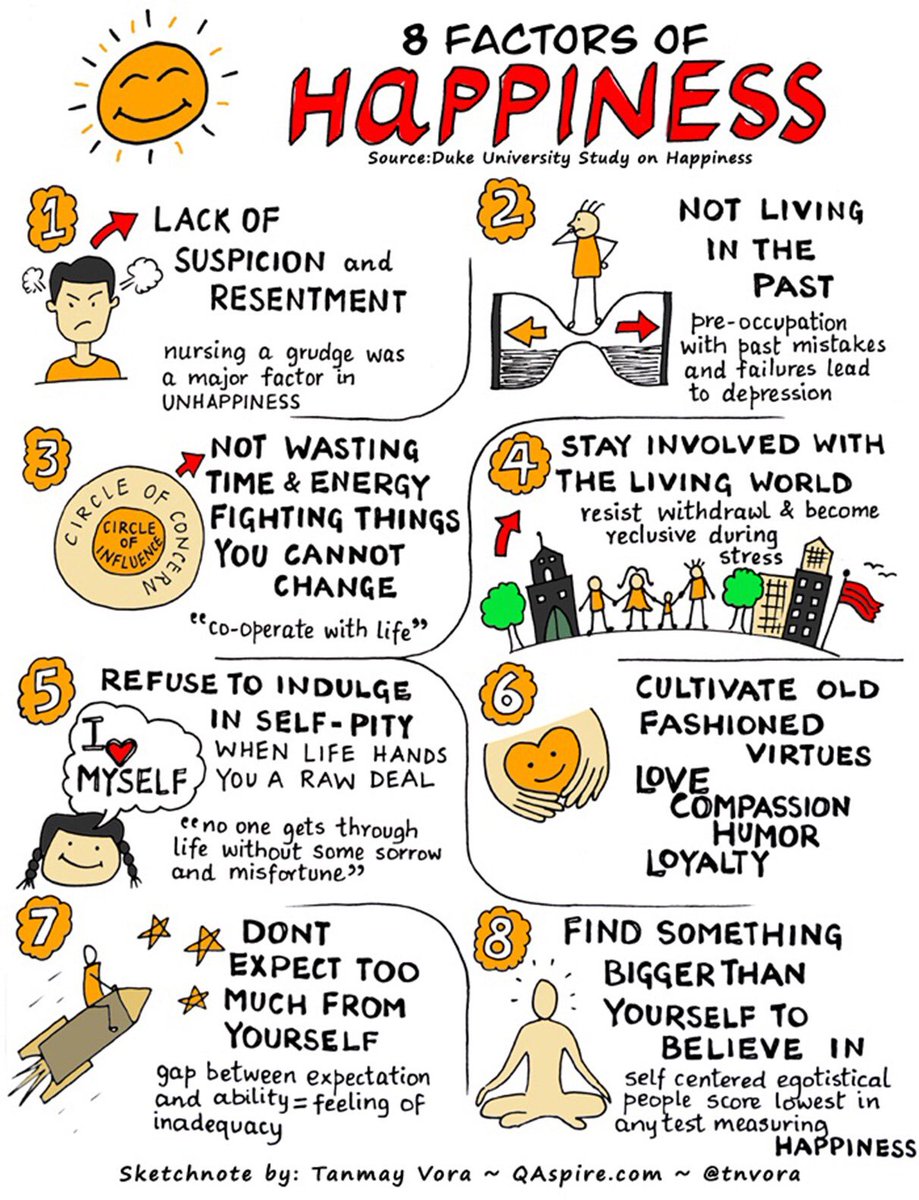 8 FACTORS OF
HaPPINESS
Source:Duke University Study on Happiness
1
LACK OF
SUSPICION and
RESENTMENT
nursing a grudge was
a major factor in
UNHAPPINESS
2
NOT LIVING
IN THE
PAST
pre-occupation
with past mistakes
and failures lead
to depression
3
CIRCLE OF CONCERN
CIRCLE
OF
INFLUENCE
NOT WASTING
TIME & ENERGY
FIGHTING THINGS
YOU CANNOT
CHANGE
"co-operate with life"
4
STAY INVOLVED WITH
THE LIVING WORLD
resist withdrawl & become
reclusive during
stress
5
REFUSE TO INDULGE
IN SELF-PITY
WHEN LIFE HANDS
YOU A RAW DEAL
I
MYSELF
"no one gets through
life without some sorrow
and misfortune"
6
CULTIVATE OLD
FASHIONED
VIRTUES
LOVE
COMPASSION
HUMOR
LOYALTY
7
DONT
EXPECT TOO
MUCH FROM
YOURSELF
gap between expectation
and ability = feeling of
inadequacy
8
FIND SOMETHING
BIGGER THAN
YOURSELF TO
BELIEVE IN
self centered egotistical
people score lowest in
any test measuring
HAPPINESS
Sketchnote by: Tanmay Vora ~ QAspire.com ~ @tnvora